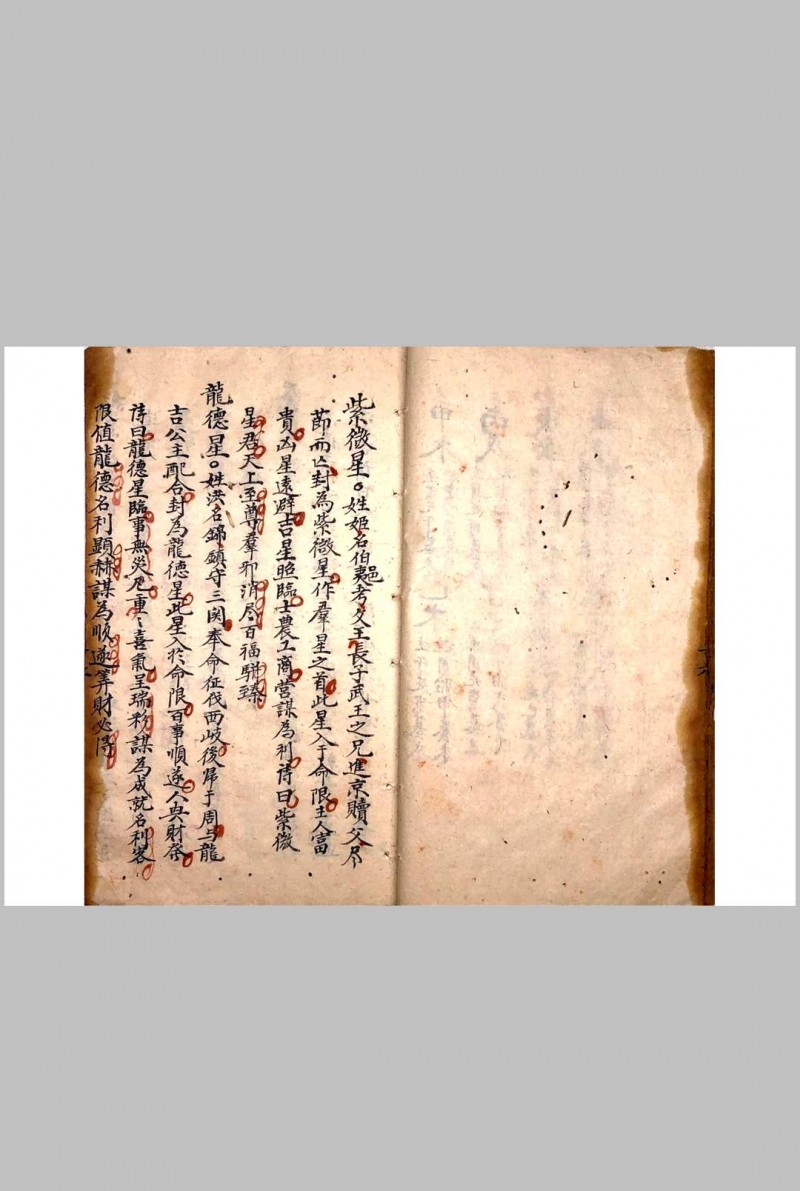 紫微星。姓姬名伯夷邑考文王長子武王之兄進京贖父尽
節而亡封為紫微星作羣星之首此星入于命限主人富
貴凶星遠避吉星照臨士農工商營謀為利詩曰紫微
星君天上至尊羣邪消尽百福駢臻
龍德星。姓洪名錦鎮守三関奉命征伐西岐後帰于周与龍
吉公主配合封為龍德星此星入於命限百事順遂人興財發
詩曰龍德星臨事無災厄重〻喜氣呈瑞彩謀為成就名利客
限值龍德名利顯赫謀為順遂筭財必得